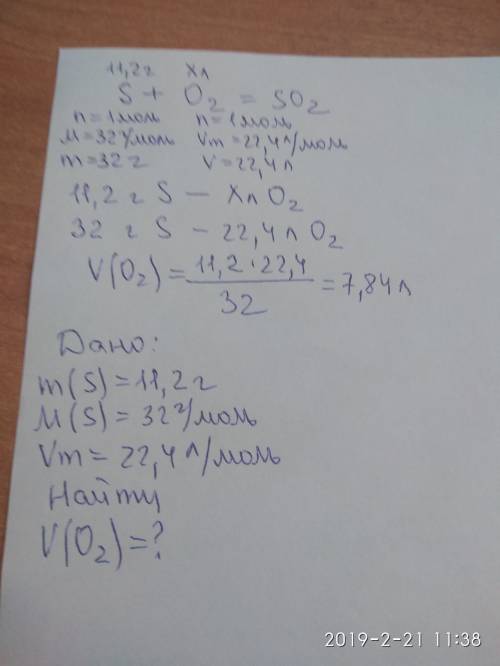 11,2г хл
S + O₂ = SO₂
n=1моль n=1моль
M=32г/моль Vm=22,4л/моль
m=32 г V=22,4л
11,2 г S — Xл O₂
32 г S – 22,4л O₂
V(O₂) = 11,2·22,4 / 32 = 7,84л
Дано:
m(S)=11,2г
M(S)=32г/моль
Vm=22,4л/моль
Найти
V(O₂)=?
2019-2-21 11:38